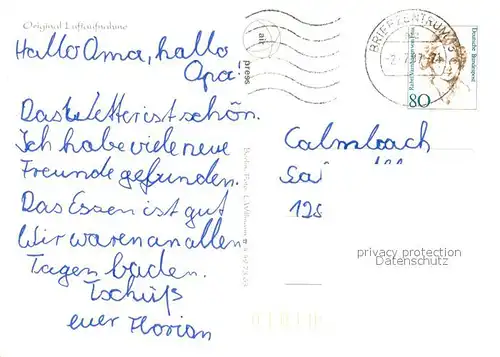 Original Luftaufnahme
Hallo Oma, hallo
Opa!
Das Wetter ist schön.
Ich habe viele neue
Freunde gefunden.
Das Essen ist gut
Wir waren an allen
Tagen baden.
Tschüß
euer Florian
air
press
BRIEFZENTRUM
Deutsche Bundespost
80
Calmbach
128
privacy protection
Datenschutz